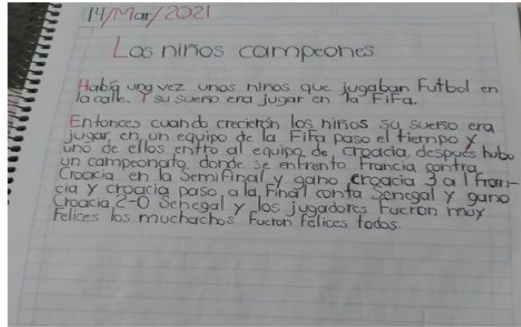 14/Mar/2021
Los niños campeones
Había una vez unos niños que jugaban Futbol en
la calle. Y su sueño era jugar en la FiFa.
Entonces cuando crecierón los niños su sueño era
jugar en un equipo de la FiFa paso el tiempo y
uno de ellos entro al equipo de croacia, después hubo
un campeonato donde se enfrento Francia contra
Crocia en la Semifinal y gano croacia 3 a 1 Fran-
cia y croacia paso a la Final conta Senegal y gano
Croacia 2-0 Senegal y los jugadores Fueron muy
Felices los muchachos Fueron felices todos.